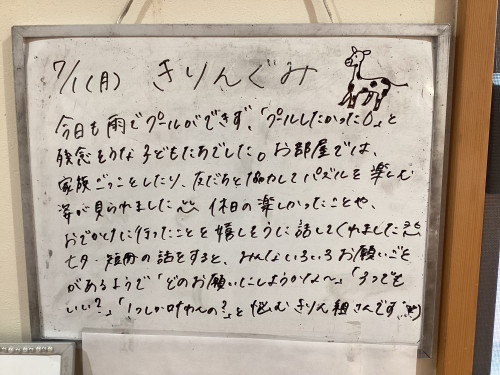 7/1(月) きりんぐみ
今日も雨でプールができず、「プールしたかった〜」と
残念そうな子どもたちでした。お部屋では、
家族ごっこをしたり、友だちと協力してパズルを楽しむ
姿が見られました 休日の楽しかったことや、
おでかけに行ったことを嬉しそうに話してくれました
七夕・短冊の話をすると、みんないろいろお願いごと
があるようで「どのお願いにしようかな〜」「3つでも
いい?」「1つしか叶わんの?」と悩むきりん組さんです